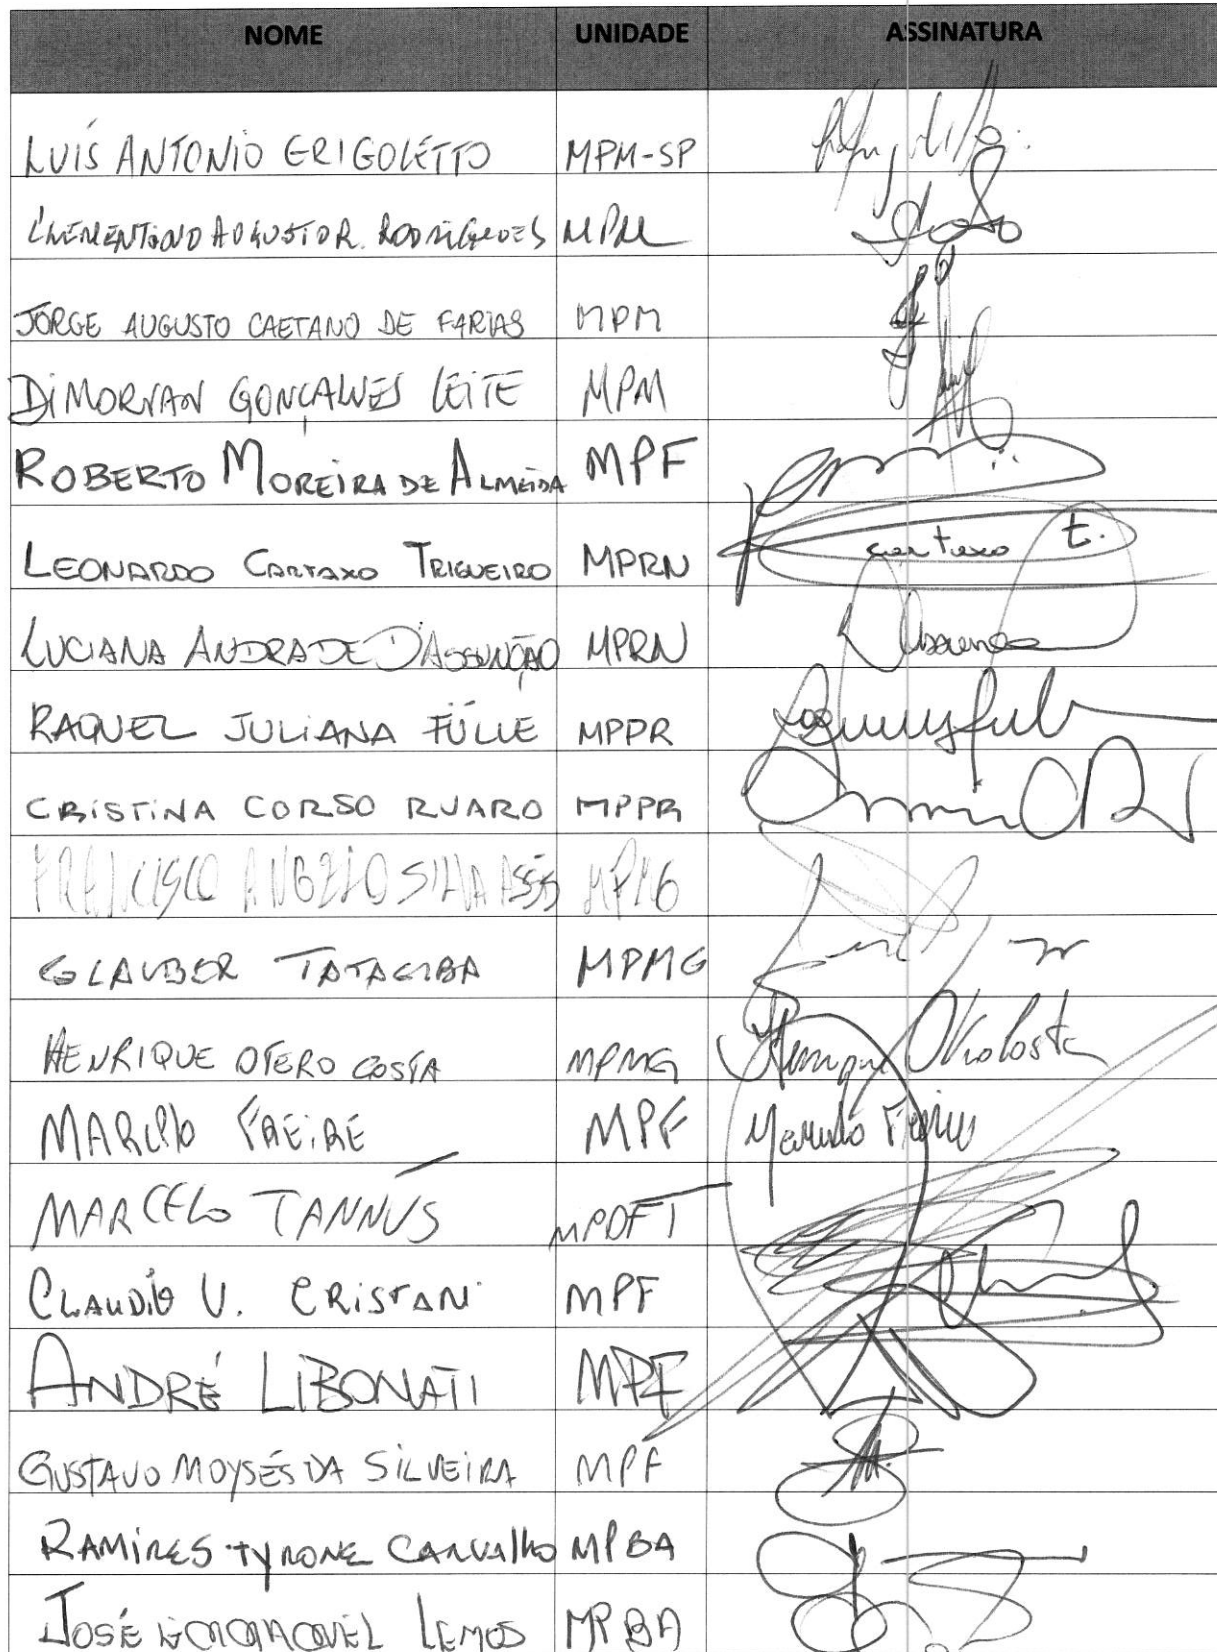 NOME UNIDADE ASSINATURA
LUÍS ANTONIO GRIGOLETTO MPM-SP
CLEMENTINO AUGUSTO R. RODRIGUES MPM
JORGE AUGUSTO CAETANO DE FARIAS MPM
DIMORVAN GONÇALVES LEITE MPM
ROBERTO MOREIRA DE ALMEIDA MPF
LEONARDO CARTAXO TRIGUEIRO MPRN cartaxo t.
LUCIANA ANDRADE D'ASSUNÇÃO MPRN
RAQUEL JULIANA FÜLLE MPPR
CRISTINA CORSO RUARO MPPR
FRANCISCO ANGELO SILVA ASSIS MPMG
GLAUBER TATAGIBA MPMG
HENRIQUE OTERO COSTA MPMG Henrique Otero Costa
FREIRE MPF
MARCELO TANNÚS MPDFT
CLAUDIO V. CRISTANI MPF
ANDRÉ LIBONATI MPF
GUSTAVO MOYSÉS DA SILVEIRA MPF
RAMIRES TYRONE CARVALHO MPBA
JOSÉ EMMANUEL LEMOS MPBA